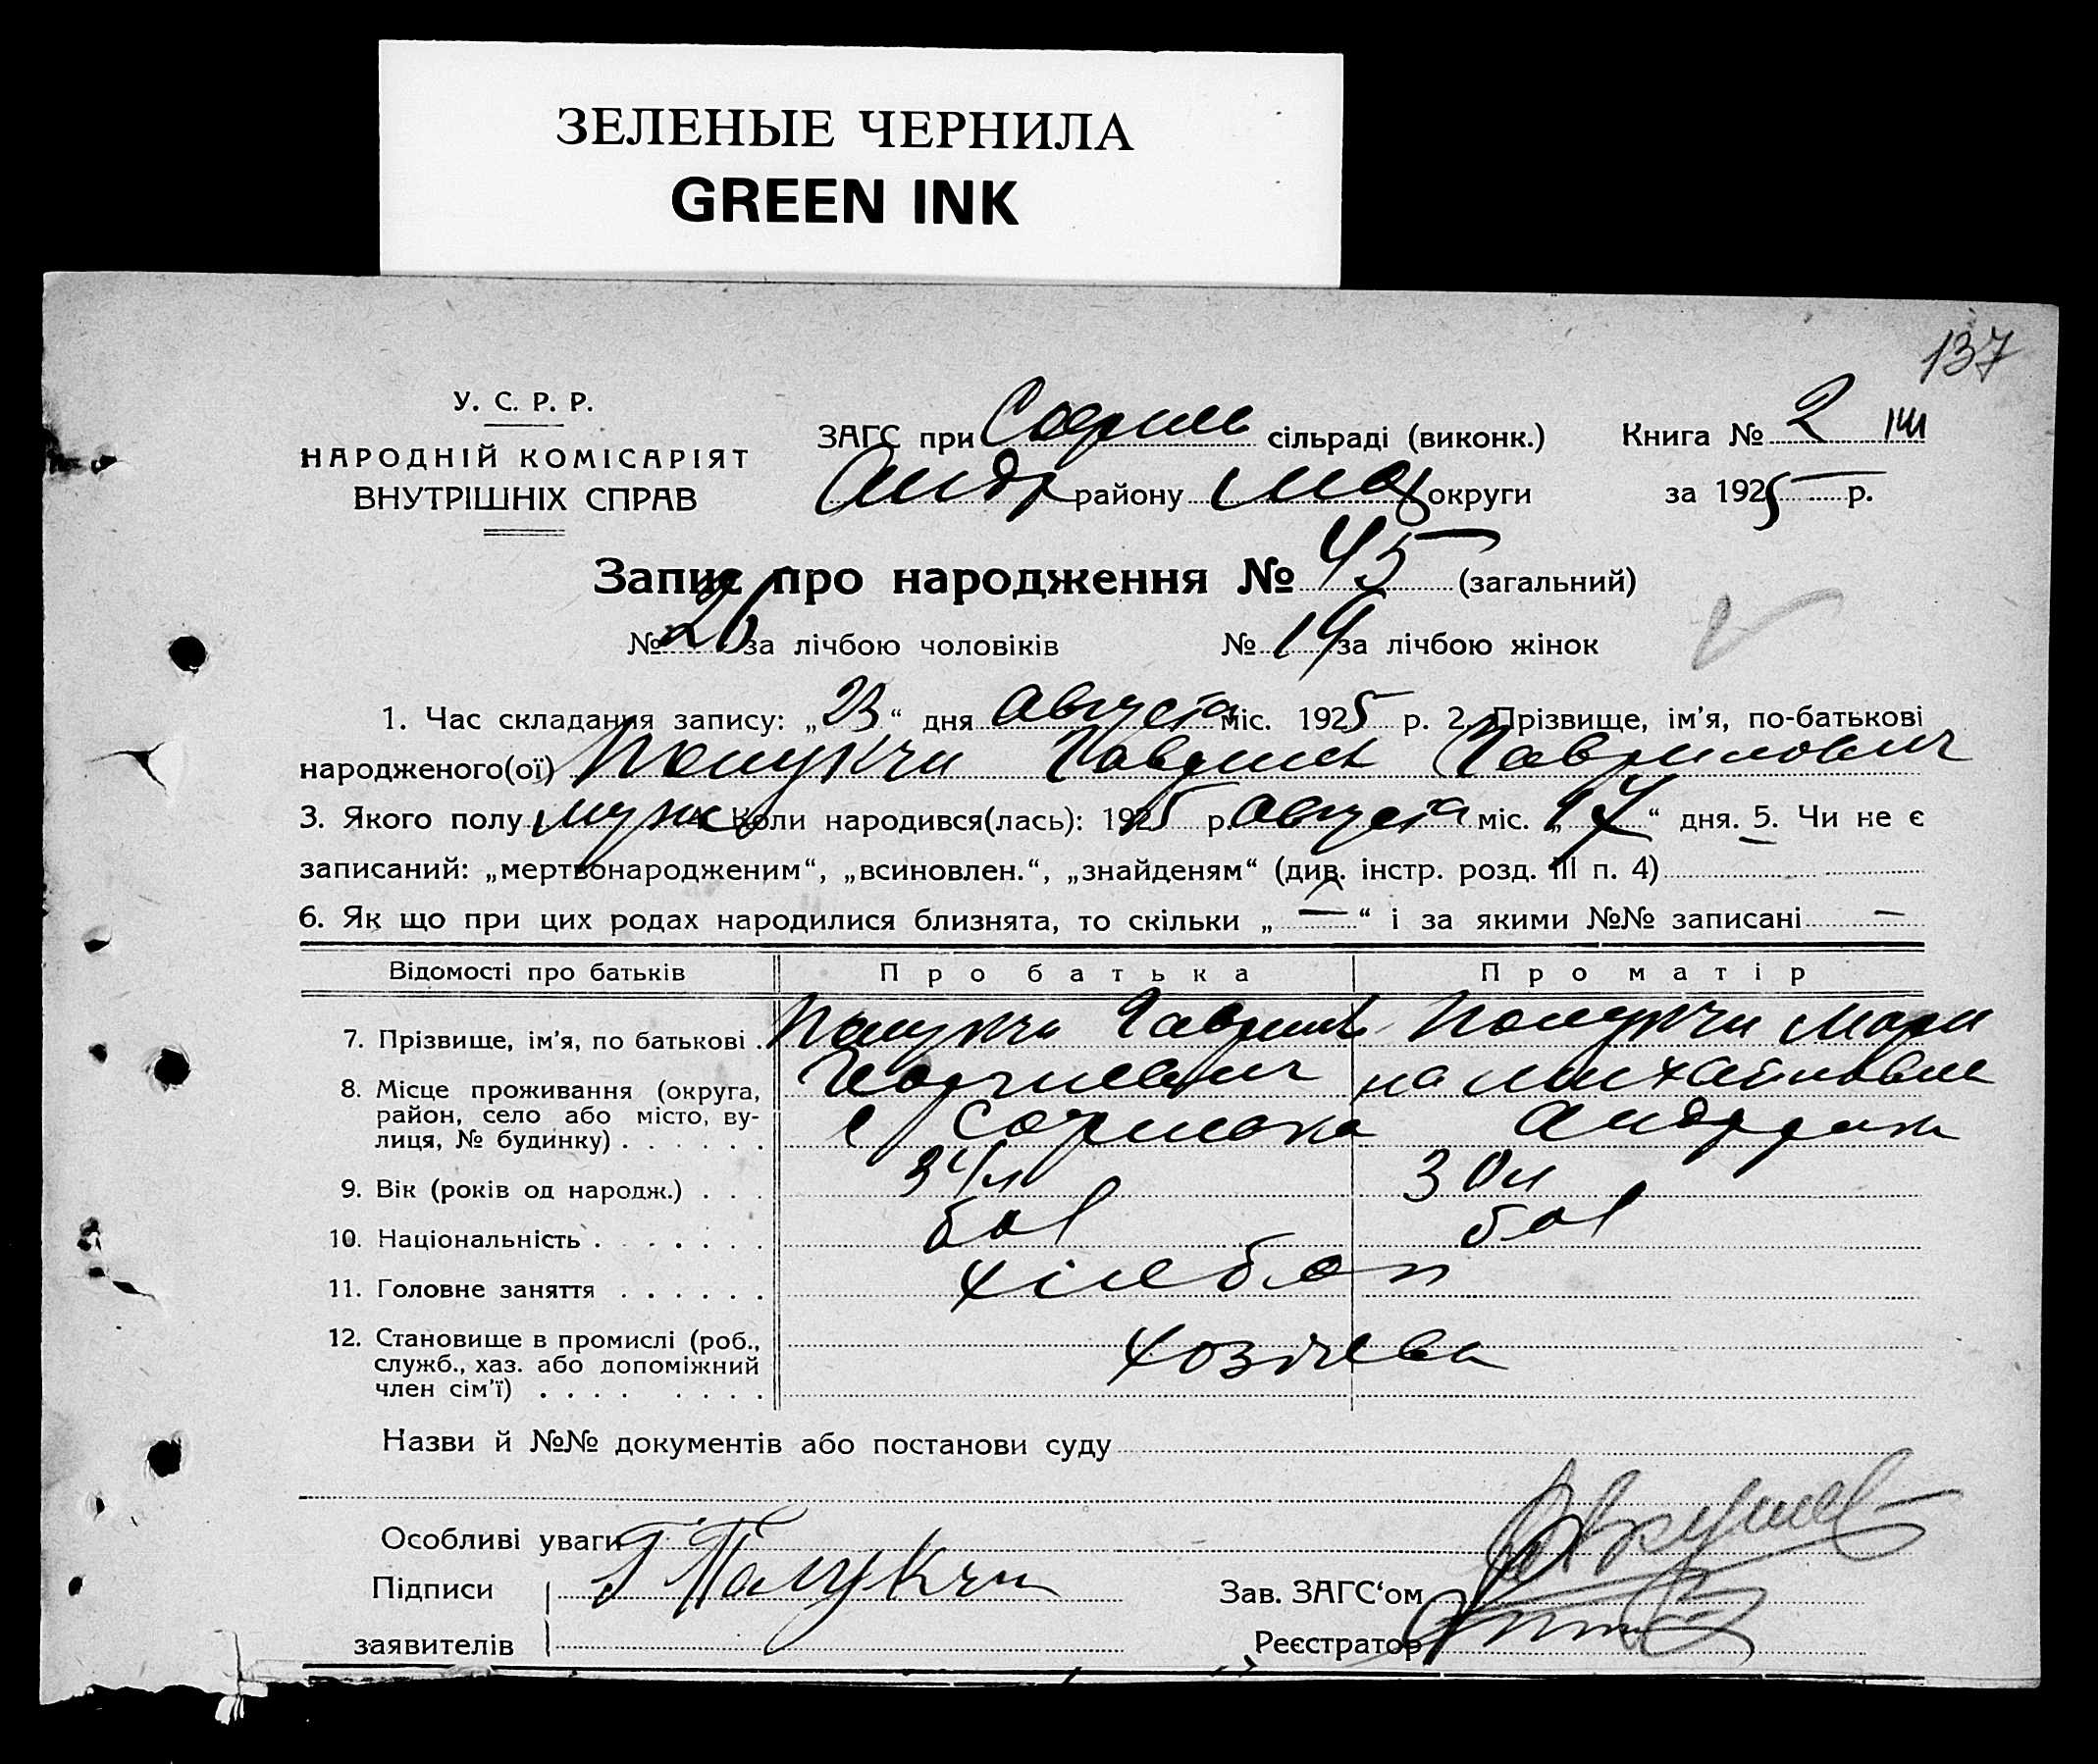 ЗЕЛЕНЫЕ ЧЕРНИЛА
GREEN INK
137
У. С. Р. Р.
НАРОДНІЙ КОМІСАРІЯТ
ВНУТРІШНІХ СПРАВ
ЗАГС при сільраді (виконк.) Книга № 2
Андр району округи за 1925 р.
Запис про народження № 45 (загальний)
№ 26 за лічбою чоловіків № 19 за лічбою жінок
1. Час складання запису: „23“ дня Августа міс. 1925 р. 2. Прізвище, ім’я, по-батькові
народженого(ої) Полукчи Гаврил Гаврилович
3. Якого полу муж Коли народився(лась): 1925 р. Августа міс. „17“ дня. 5. Чи не є
записаний: „мертвонародженим“, „всиновлен.“, „знайденям“ (див. інстр. розд. III п. 4)
6. Як що при цих родах народилися близнята, то скільки „—“ і за якими №№ записані —
Відомості про батьків Про батька Про матір
7. Прізвище, ім’я, по батькові . Полукчи Гаврил Полукчи Мари
8. Місце проживання (округа, на Михайловна
район, село або місто, ву-
лиця, № будинку) . . . . . . с Софиевка
9. Вік (років од народж.) . . . 34 л 30 л
10. Національність . . . . . . . бол бол
11. Головне заняття . . . . . . хлебоп
12. Становище в промислі (роб.,
служб., хаз. або допоміжний
член сім’ї) . . . . . . . .
Назви й №№ документів або постанови суду
Особливі уваги
Підписи Г Палукчи Зав. ЗАГС‘ом
заявителів Реєстратор